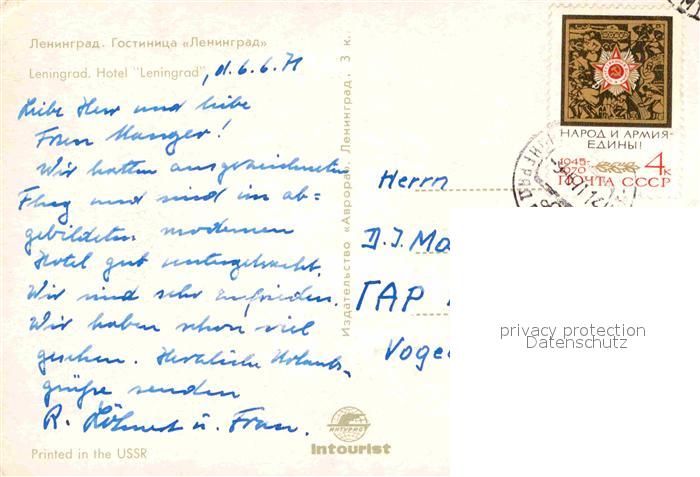 Ленинград. Гостиница «Ленинград»
Leningrad. Hotel "Leningrad", d. 6.6.71
Liebe Herr und liebe
Frau Manger!
Wir hatten ausgezeichneten
Flug und sind im ab-
gebildeten modernen
Hotel gut untergebracht.
Wir sind sehr zufrieden.
Wir haben schon viel
gesehen. Herzliche Urlaubs-
grüße senden
R. u. Frau.
Printed in the USSR
Издательство «Аврора». Ленинград. 3 к.
ИНТУРИСТ
Intourist
НАРОД И АРМИЯ-
ЕДИНЫ!
1945-
1970
4к
ПОЧТА СССР
Herrn
D.I. Ma
ГАР
Voge
privacy protection
Datenschutz